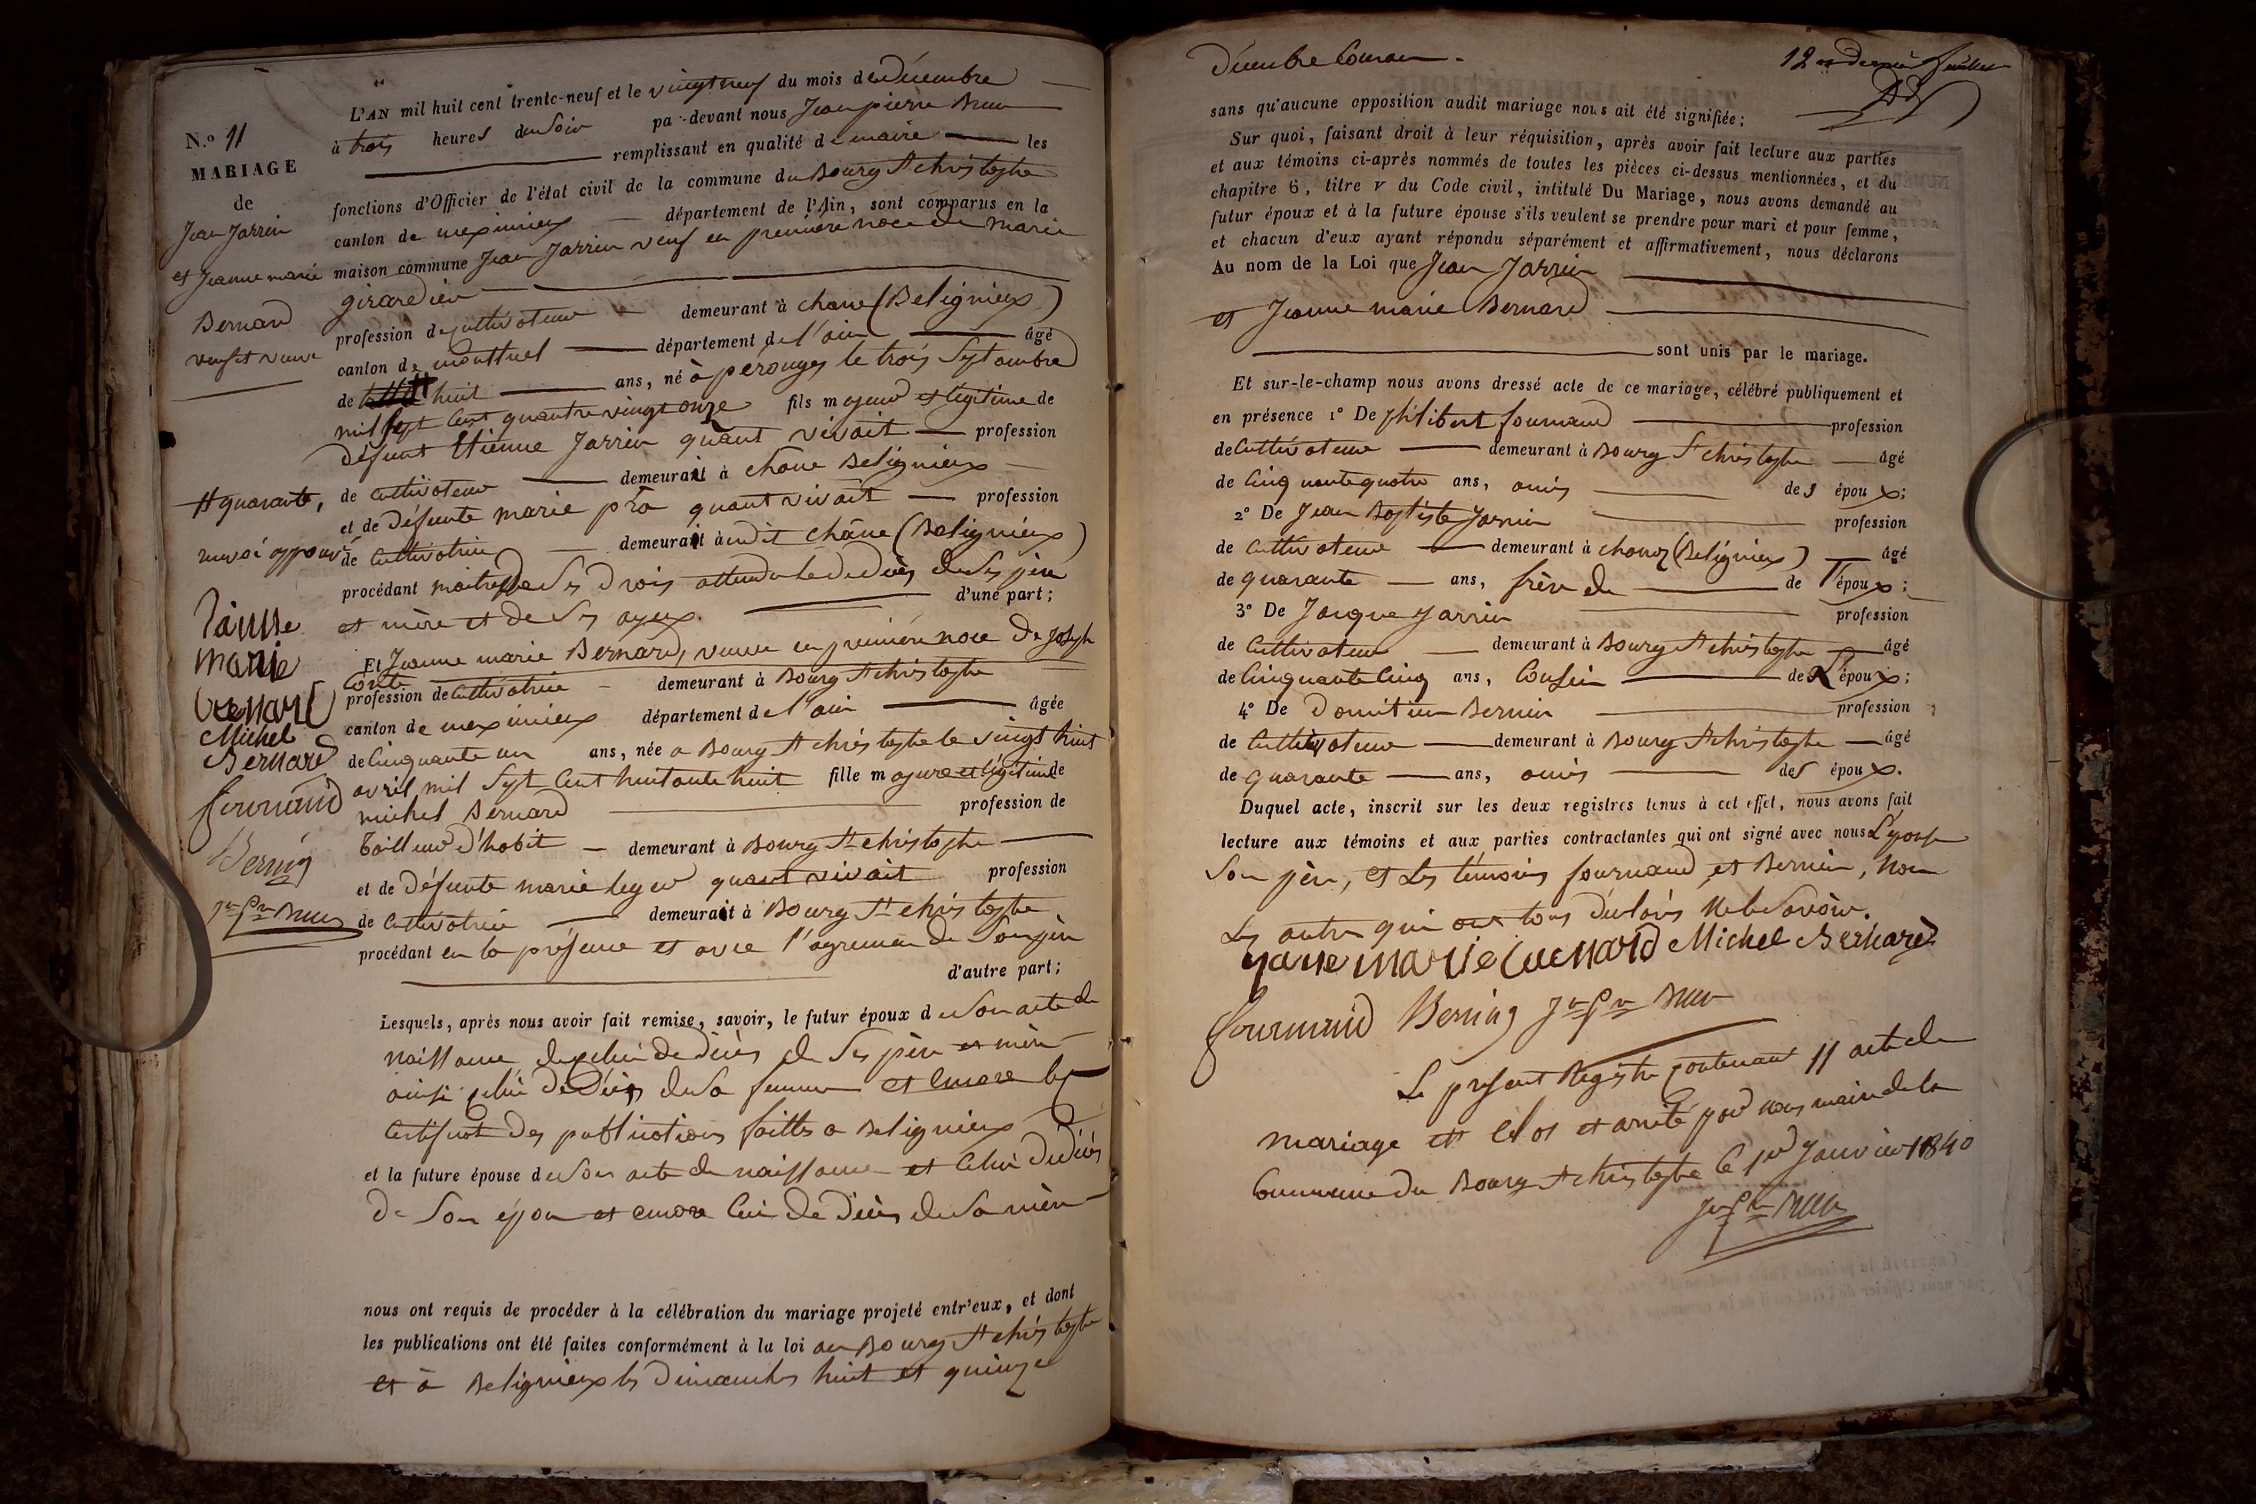 N.o 11
MARIAGE
de
Jean Jarrin
et Jeanne marie
Bernard
veuf et veuve
L'AN mil huit cent trente-neuf et le vingt neuf du mois de Décembre
à trois heures du Soir par-devant nous Jean pierre Brun
remplissant en qualité de maire les
fonctions d'Officier de l'état civil de la commune du Bourg St christophe
canton de meximieux département de l'Ain, sont comparus en la
maison commune Jean Jarrin veuf en première noce de marie
girardier
profession de cultivateur demeurant à chane (Beligneux)
canton de montluel département de l'ain âgé
de huit ans, né à pérouges le trois Septembre
mil sept cent quantre vingt onze fils majeur et légitime de
défunt Etienne Jarrin quant vivait profession
de cultivateur demeurait à châne Beligneux
et de défunte marie pra quant vivait profession
de cultivatrice demeurait audit châne (Beligneux)
procédant maitre de Ses Droits attendu le décès de Ses père
et mère et de Ses ayeux. d'une part;
# quarante,
renvoi approuvé
Janne
marie
bernard
Michel
Bernard
fournand
Bernin
Jn Pre Brun
Et Jeanne marie Bernard, veuve en première noce de Joseph
Conte
profession de cultivatrice demeurant à Bourg St christophe
canton de meximieux département de l'ain âgée
de Cinquante un ans, née a Bourg St christophe le vingt huit
avril mil Sept Cent huitante huit fille majeure et légitime de
michel Bernard profession de
Tailleur d'habit demeurant à Bourg St christophe
et de défunte marie leger quant vivait profession
de cultivatrice demeurait à Bourg St christophe
procédant en la présence et avec l'agrement de Son père
d'autre part;
Lesquels, après nous avoir fait remise, savoir, le futur époux de Son acte de
naissance de celui de décès de Ses père et mère
ainsi celui de Décès de Sa femme et encore le
Certificat des publications faittes a Beligneux
et la future épouse de Son acte de naissance et Celui de décès
de Son époux et encore Celui de Décès de Sa mère
nous ont requis de procéder à la célébration du mariage projeté entr'eux, et dont
les publications ont été faites conformément à la loi au Bourg St christophe
et à Beligneux les Dimanches huit et quinze
Décembre Courant.
12 et Dernier feuillet
sans qu'aucune opposition audit mariage nous ait été signifiée:
Sur quoi, faisant droit à leur réquisition, après avoir fait lecture aux parties
et aux témoins ci-après nommés de toutes les pièces ci-dessus mentionnées, et du
chapitre 6, titre V du Code civil, intitulé Du Mariage, nous avons demandé au
futur époux et à la future épouse s'ils veulent se prendre pour mari et pour femme,
et chacun d'eux ayant répondu séparément et affirmativement, nous déclarons
Au nom de la Loi que Jean Jarrin
et Jeanne marie Bernard
sont unis par le mariage.
Et sur-le-champ nous avons dressé acte de ce mariage, célébré publiquement et
en présence 1° De philibert fournand profession
de Cultivateur demeurant à Bourg St christophe âgé
de Cinquante quatre ans, amis des époux;
2° De Jean Baptiste Jarrin profession
de Cultivateur demeurant à chane (Beligneux) âgé
de quarante ans, frère de de l'époux;
3° De Jacque Jarrin profession
de Cultivateur demeurant à Bourg St christophe âgé
de Cinquante Cinq ans, Cousin de l'époux;
4° De Domitien Bernin profession
de Cultivateur demeurant à Bourg St christophe âgé
de quarante ans, amis des époux.
Duquel acte, inscrit sur les deux registres tenus à cet effet, nous avons fait
lecture aux témoins et aux parties contractantes qui ont signé avec nous L'épouse
Son père, et Les témoins fournand et Bernin, Non
Les autres qui ont tous déclarés Ne le Savoir.
Jane marie Bernard Michel Bernard
fournand Bernin Jn Pre Brun
Le présent Registre contenant 11 acte de
mariage est Clos et arrêté par nous maire de la
Commune du Bourg St christophe Ce 1er Janvier 1840
Jn Pre Brun